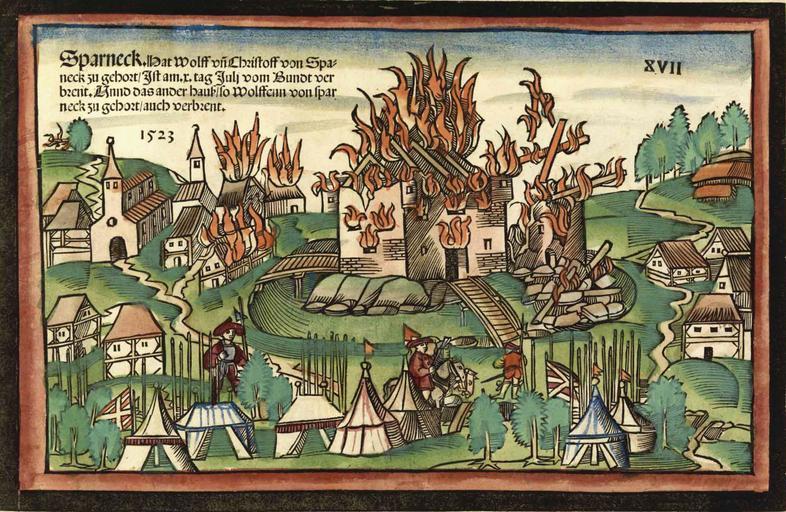 Sparneck. Hat Wolff vñ Christoff von Spa-
neck zu gehort/ Ist am .x. tag Julj vom Bundt ver
brent. Vnnd das ander hauß/ so Wolffenn von spar
neck zu gehort/ auch verbrent.
XVII
1523